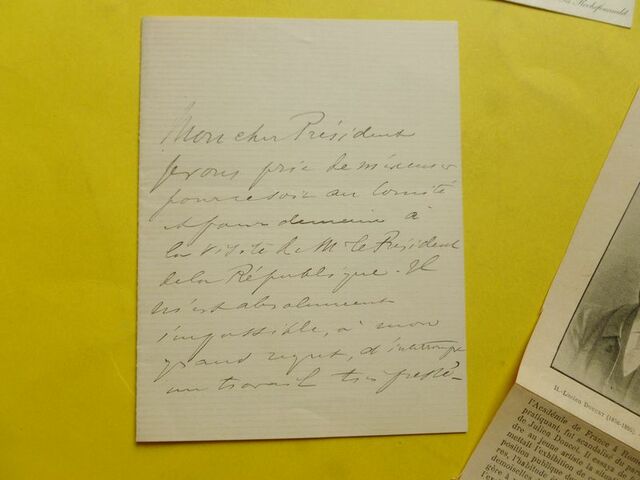 La Rochefoucauld
Mon cher Président
Je vous prie de m'excuser
pour ce soir au Comité
et pour demain à
la visite de Mr le Président
de la République. Il
m'est absolument
impossible, à mon
grand regret, d'interrompre
un travail très pressé_
H.-Lucien DOUCET (1856-1895)
l'Académie de France à Rome
pratiquant, fut scandalisé du
de Julien Doucet. Il essaya de
dre au jeune artiste la
mettait l'exhibition de
position publique de
res, l'habitude
demoiselles
gère à
l'ex